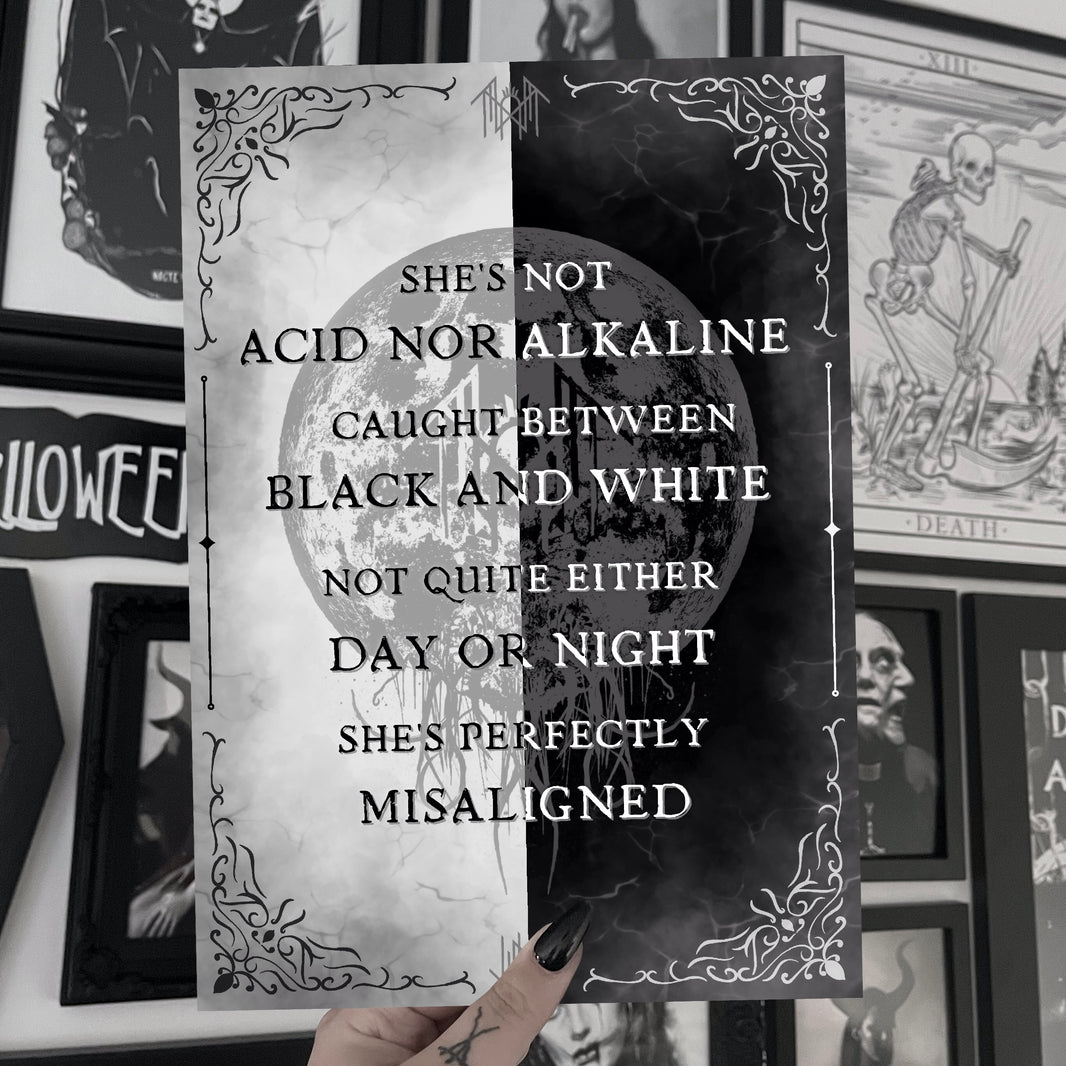 XIII
SHE'S NOT
ACID NOR ALKALINE
CAUGHT BETWEEN
BLACK AND WHITE
NOT QUITE EITHER
DAY OR NIGHT
SHE'S PERFECTLY
MISALIGNED
LLOWEE
DEATH
D
A